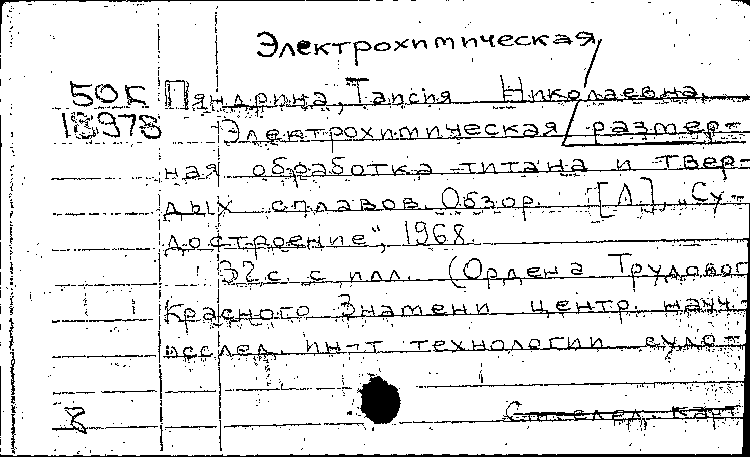 Электрохимическая
50Г Пяндрина, Таисия Николаевна.
18978 Электрохимическая размер-
ная обработка титана и твер-
дых сплавов. Обзор. [Л], „Су-
достроение", 1968.
32с. с илл. (Ордена Трудовог
Красного Знамени центр. науч.-
исслед. ин-т технологии судо-
8 См. след. карт